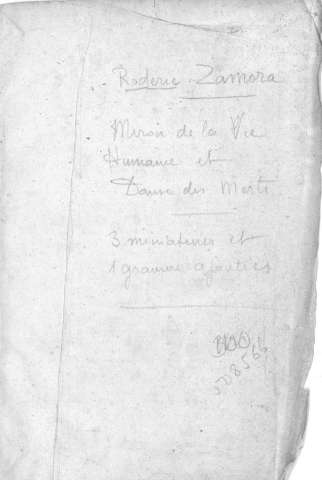 Roderic Zamora
Miroir de la Vie
Humaine et
Danse des Morts
3 miniatures et
1 gravure ajoutées